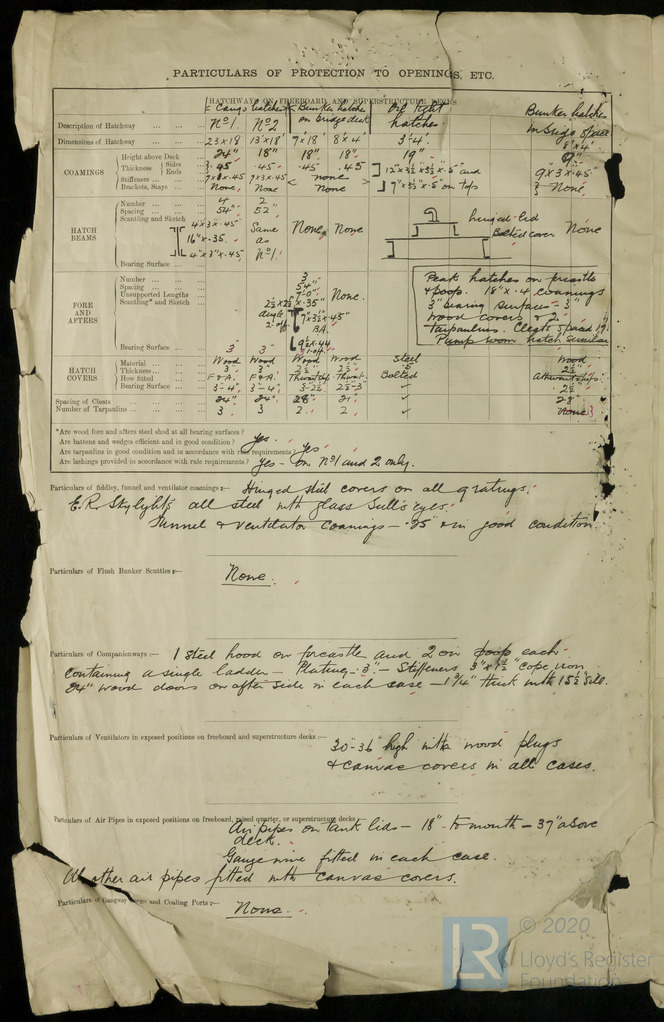 PARTICULARS OF PROTECTION TO OPENINGS, ETC.
HATCHWAYS ON FREEBOARD AND SUPERSTRUCTURE DECKS
Description of Hatchway Cargo hatches No 1. No 2 Bunker hatches on bridge deck Oil tight hatches. Bunker hatches
Dimensions of Hatchway 23 x 18 13' x 18' 7 x 18' 8' x 4' 3'-4'. 8' x 4'
COAMINGS
Height above Deck 24" 18" 18" 18". 19" 9".
Thickness Sides Ends .45 .45 .45 .45
Stiffeners 7 x 3 x .45 7 x 3 x .45 none 9 x 3 x .45
Brackets, Stays None, None None None.
12" x 3½ x 3½" x .5" and
7" x 3½ x .5 on tops
HATCH BEAMS
Number 4 2
Spacing 54" 52"
Scantling and Sketch 4 x 3 x .45 16" x .35. 4" x 3" x .45 Same as No 1. None, None None
Bearing Surface
hinged lid
Bolted cover
FORE AND AFTERS
Number 3
Spacing 54"
Unsupported Lengths 7'-0"
Scantling* and Sketch None.
angle 7" x 3½ x .45" BA.
Bearing Surface 3" 3"
Peak hatches on forecastle
& poop. 18" x .4 coamings
3" bearing surface - 3"
wood covers & 2
tarpaulins. Cleats spaced 19.
Pump room hatch similar
HATCH COVERS
Material Wood Wood Wood Wood Steel Wood
Thickness 3" 3" 2½" 2½" 2½"
How fitted F & A. F & A. Thwartship Thwart. Bolted Athwartships.
Bearing Surface 3"-4". 3"-4". 3-2½. 2½-3" 2½"
Spacing of Cleats 24" 24" 28" 21" ✓ 28"
Number of Tarpaulins 3 3 2 2 ✓ None 3
*Are wood fore and afters steel shod at all bearing surfaces?
Are battens and wedges efficient and in good condition? Yes.
Are tarpaulins in good condition and in accordance with rule requirements? Yes
Are lashings provided in accordance with rule requirements? Yes - on No 1 and 2 only.
Particulars of fiddley, funnel and ventilator coamings:— Hinged steel covers on all gratings.
E.R. Skylights all steel with glass bull's eyes.
Funnel & Ventilator Coamings - .35" & in good condition
Particulars of Flush Bunker Scuttles:—
None.
Particulars of Companionways:— 1 steel hood on forecastle and 2 on poop each
containing a single ladder - Plating .3" - Stiffeners 3" x 1½" cope iron
24" wood doors on after side in each case - 1¾" thick with 15½" sill.
Particulars of Ventilators in exposed positions on freeboard and superstructure decks:—
30"-36" high with wood plugs
& canvas covers in all cases.
Particulars of Air Pipes in exposed positions on freeboard, raised quarter, or superstructure decks
Air pipes on tank lids - 18" to mouth - 37" above
deck.
Gauze wire fitted in each case.
All other air pipes fitted with canvas covers.
Particulars of Gangway Doors and Coaling Ports:—
None.
LR
© 2020
Lloyd's Register
Foundation